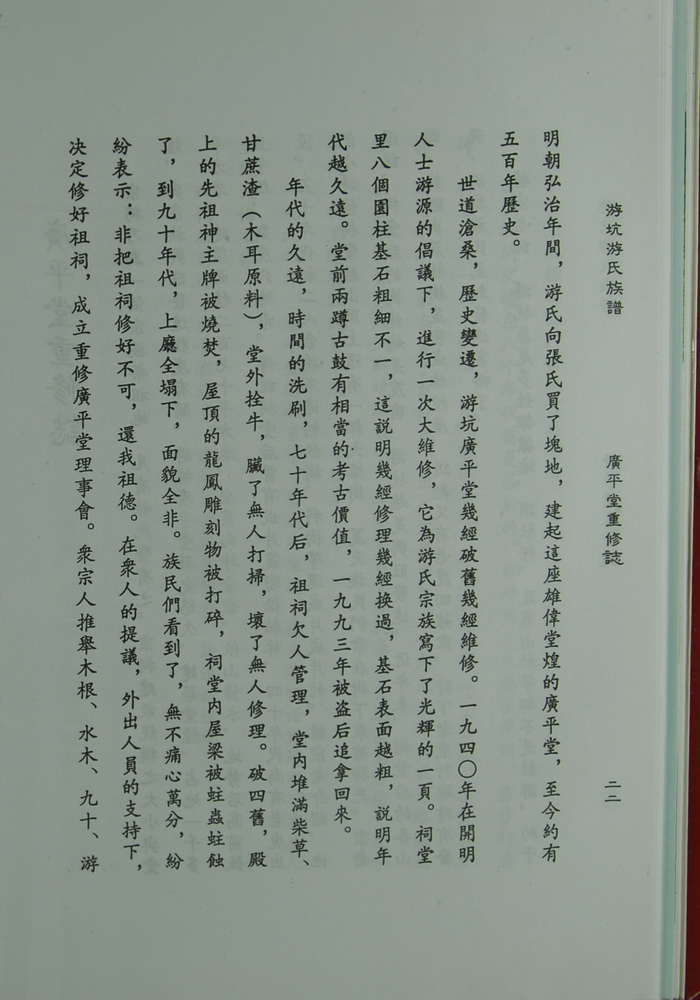 游坑游氏族譜 廣平堂重修誌 二二
明朝弘治年間，游氏向張氏買了塊地，建起這座雄偉堂煌的廣平堂，至今約有
五百年歷史。
世道滄桑，歷史變遷，游坑廣平堂幾經破舊幾經維修。一九四〇年在開明
人士游源的倡議下，進行一次大維修，它為游氏宗族寫下了光輝的一頁。祠堂
里八個園柱基石粗細不一，這説明幾經修理幾經換過，基石表面越粗，説明年
代越久遠。堂前兩蹲古鼓有相當的考古價值，一九九三年被盗后追拿回來。
年代的久遠，時間的洗刷，七十年代后，祖祠欠人管理，堂内堆滿柴草、
甘蔗渣（木耳原料），堂外拴牛，臟了無人打掃，壞了無人修理。破四舊，殿
上的先祖神主牌被燒焚，屋頂的龍鳳雕刻物被打碎，祠堂内屋梁被蛀蟲蛀蝕
了，到九十年代，上廳全塌下，面貌全非。族民們看到了，無不痛心萬分，紛
紛表示：非把祖祠修好不可，還我祖德。在衆人的提議，外出人員的支持下，
决定修好祖祠，成立重修廣平堂理事會。衆宗人推舉木根、水木、九十、游